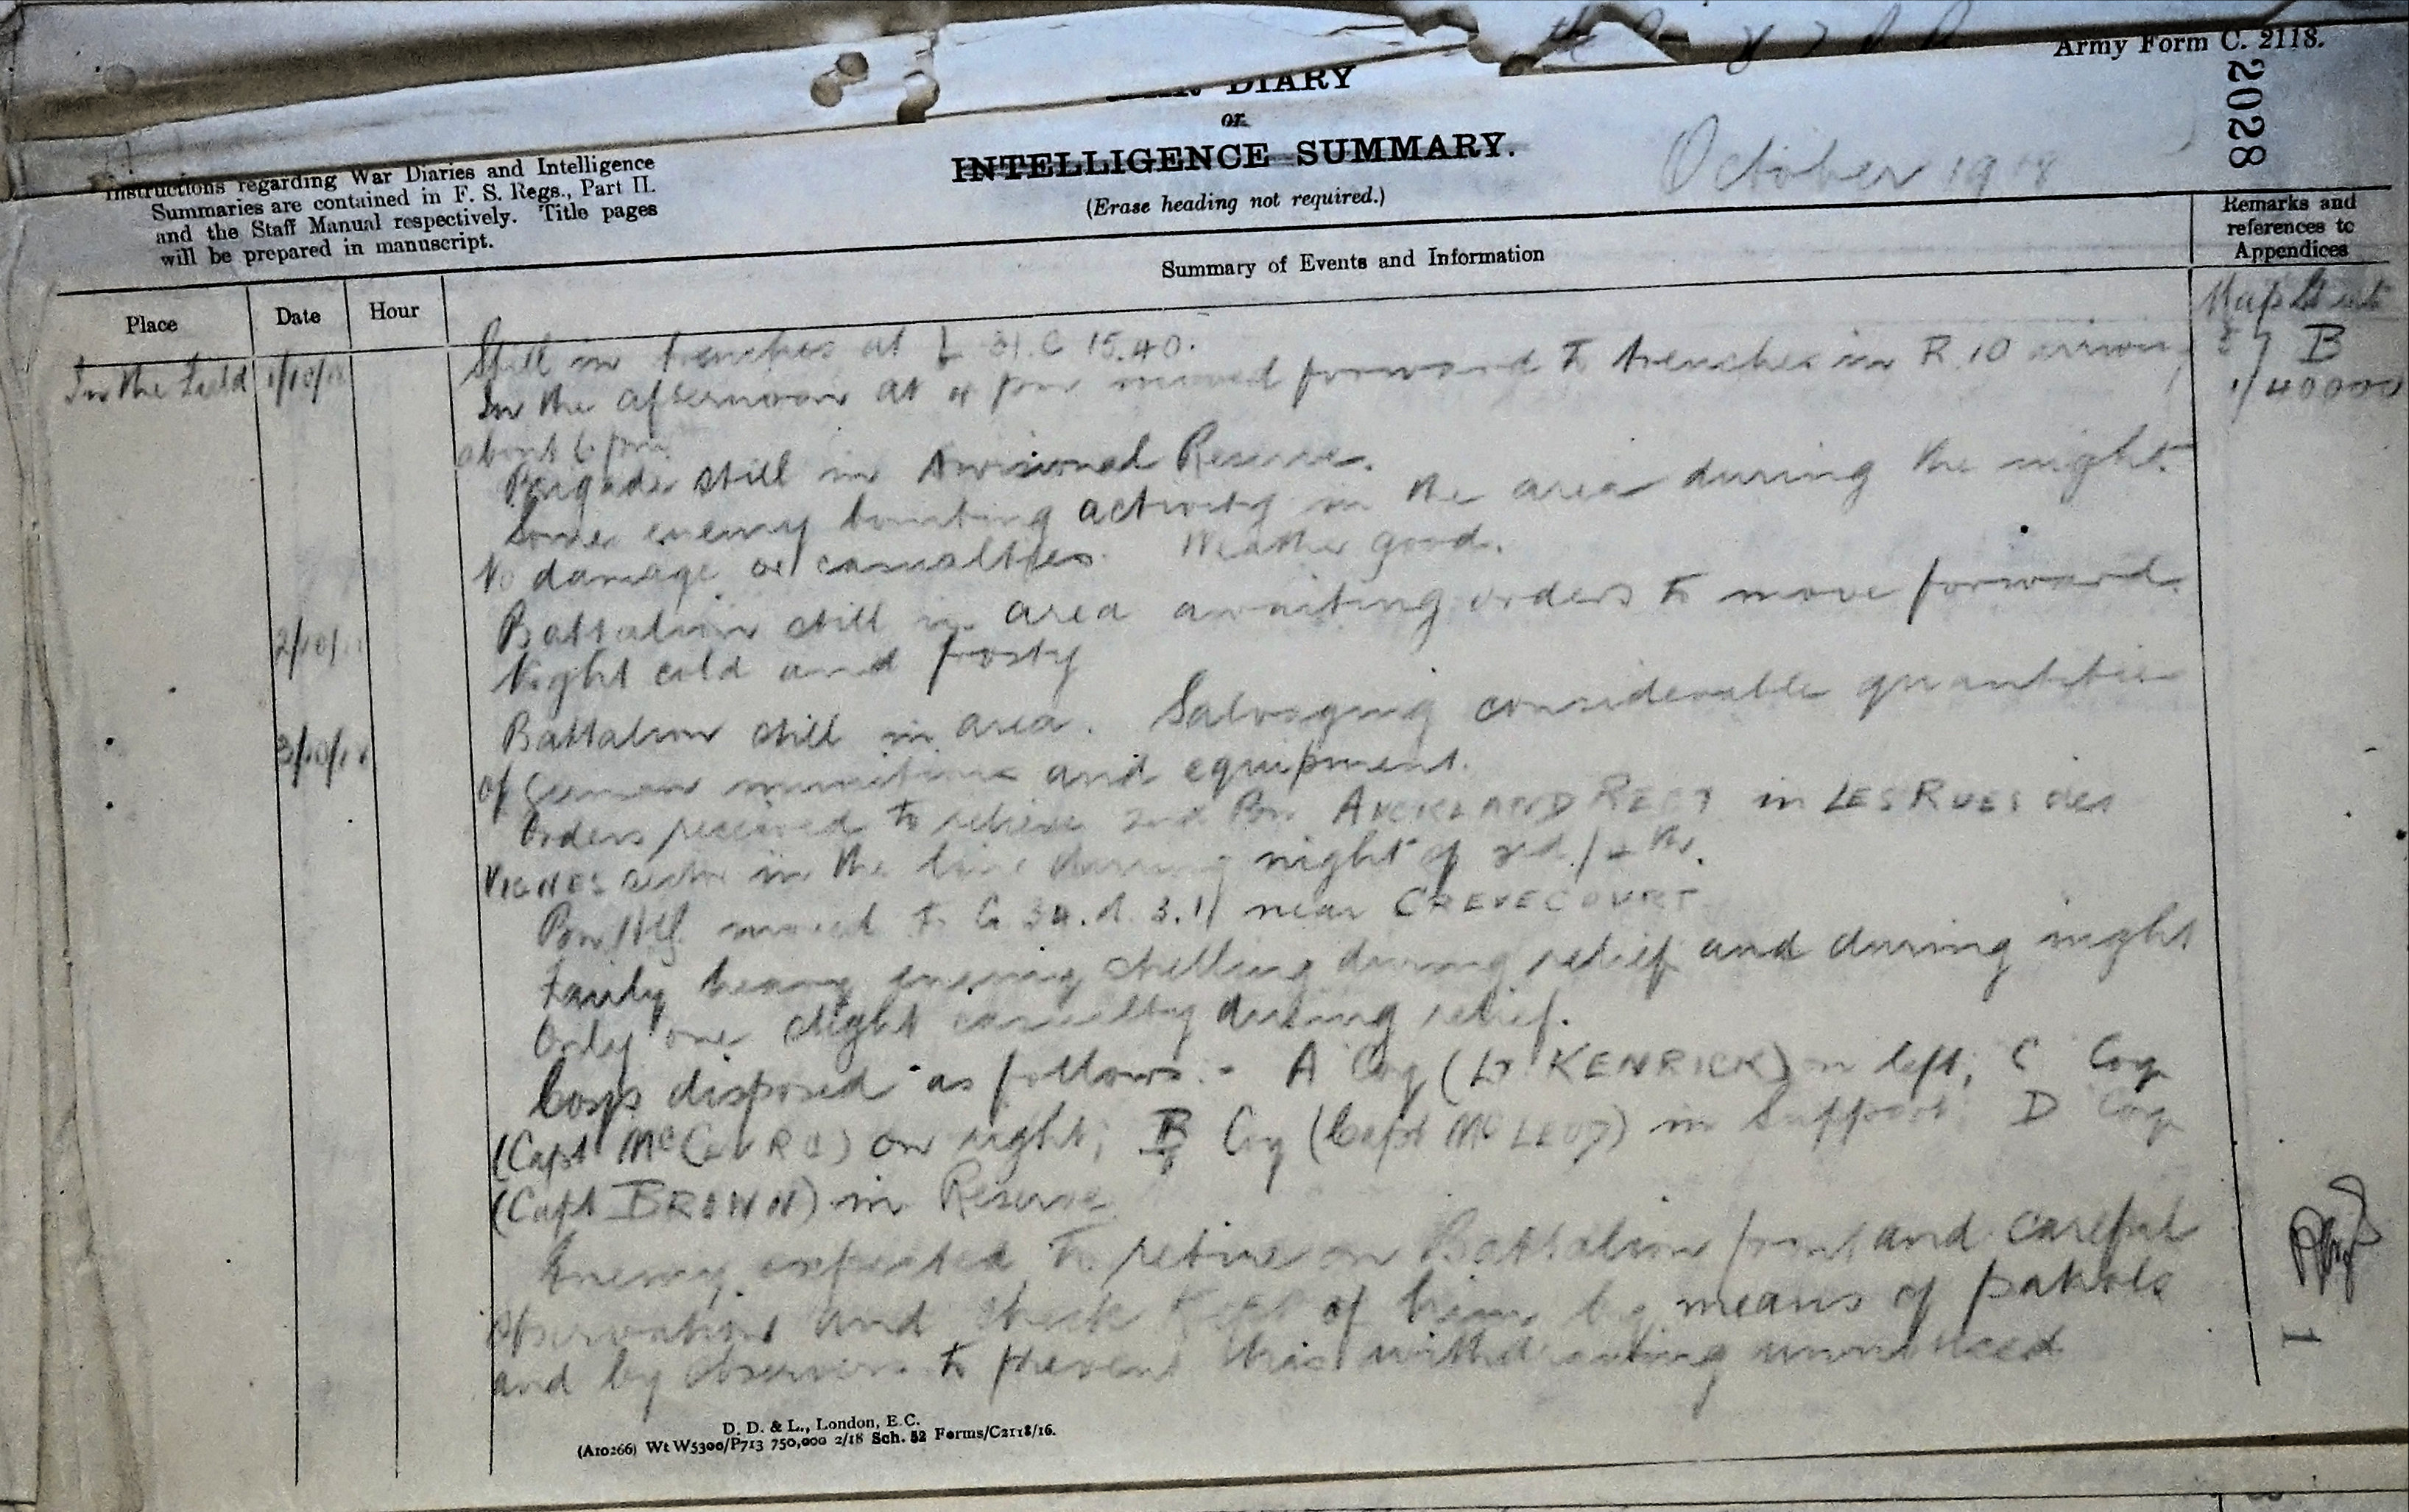 Army Form C. 2118.
2028
DIARY
or
INTELLIGENCE SUMMARY.
(Erase heading not required.)
October 1918
Instructions regarding War Diaries and Intelligence
Summaries are contained in F. S. Regs., Part II.
and the Staff Manual respectively. Title pages
will be prepared in manuscript.
Summary of Events and Information
Remarks and
references to
Appendices
Place
Date
Hour
Map Sheet
57 B
1/40000
In the Field
1/10/18
Still in trenches at L 31.C 15.40.
In the afternoon at 4 pm moved forward to trenches in R 10 arriving
about 6 pm.
Brigade still in Divisional Reserve.
Some enemy bombing activity in the area during the night.
No damage or casualties. Weather good.
2/10/18
Battalion still in area awaiting orders to move forward.
Night cold and frosty
3/10/18
Battalion still in area. Salvaging considerable quantities
of German munitions and equipment.
Orders received to relieve 2nd Bn AUCKLAND REGT in LES RUES des
VIGNES sector in the line during night of 3rd/4th.
Bn HQ. moved to G 34.d.3.1 near CREVECOURT
Fairly heavy enemy shelling during relief and during night
Only one slight casualty during relief.
Coys disposed as follows:- A Coy (Lt KENRICK) on left; C Coy
(Capt McCLURE) on right; B Coy (Capt McLEOD) in Support; D Coy
(Capt BROWN) in Reserve
Enemy expected to retire on Battalion front and careful
observation and check kept of him by means of patrols
and by observers to prevent his withdrawing unnoticed
1
D. D. & L., London, E.C.
(A10266) Wt W5300/P713 750,000 2/18 Sch. 52 Forms/C2118/16.